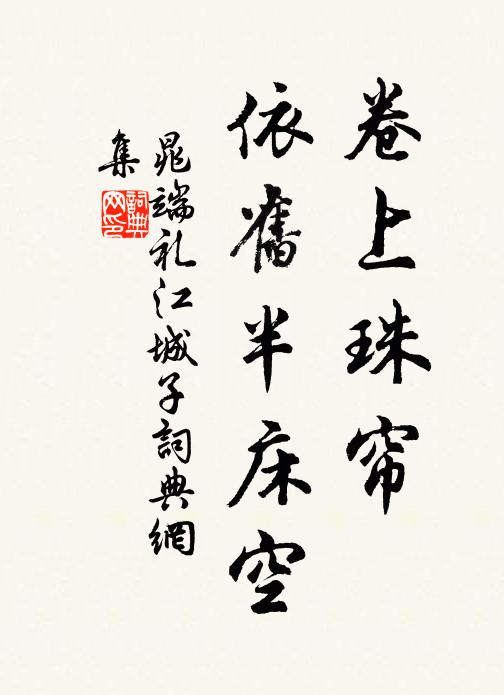 卷上珠帘
依舊半床空
晁端礼江城子詞典網
集
詞典
网印